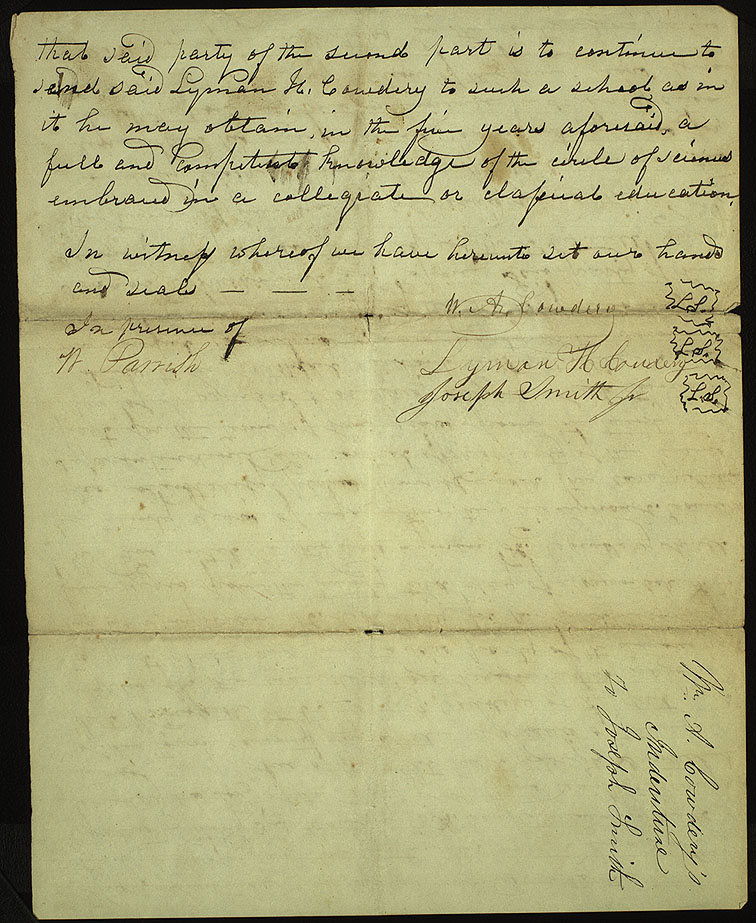 that said party of the second part is to continue to
send said Lyman H. Cowdery to such a school as in
it he may obtain, in the five years aforesaid, a
full and competent knowledge of the circle of sciences
embraced in a collegiate or classical education.
In witness whereof we have hereunto set our hands
and seals — — —
W. A. Cowdery L.S.
In presence of
W. Parrish
Lyman H Cowdery L.S.
Joseph Smith Jr L.S.
Wm. A. Cowdery's
Indenture
To Joseph Smith